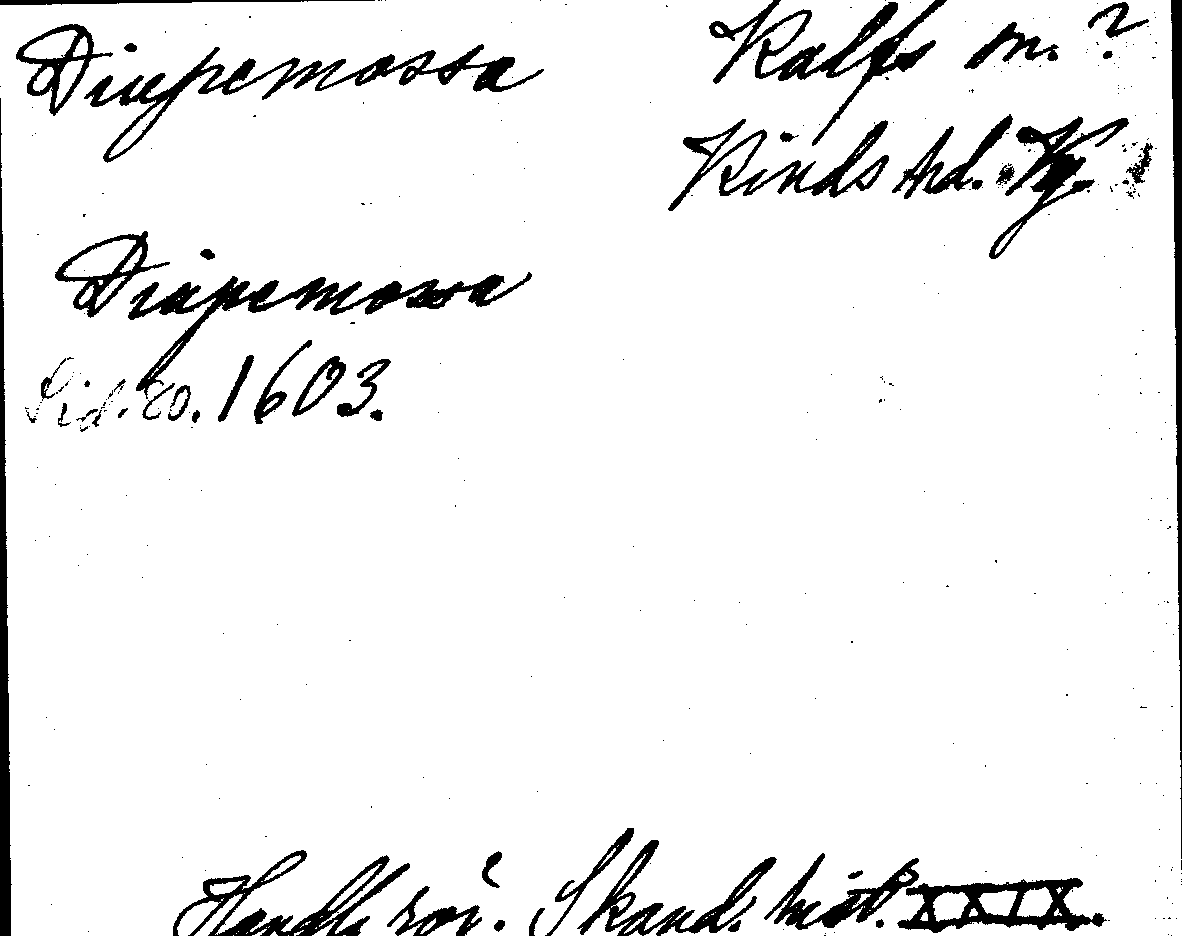 Diupemossa
Kalfs sn. ?
Kinds hd. Vg.
Diupemossa
Sid. 80. 1603.
Handl. rör. Skand. hist. XXIX.